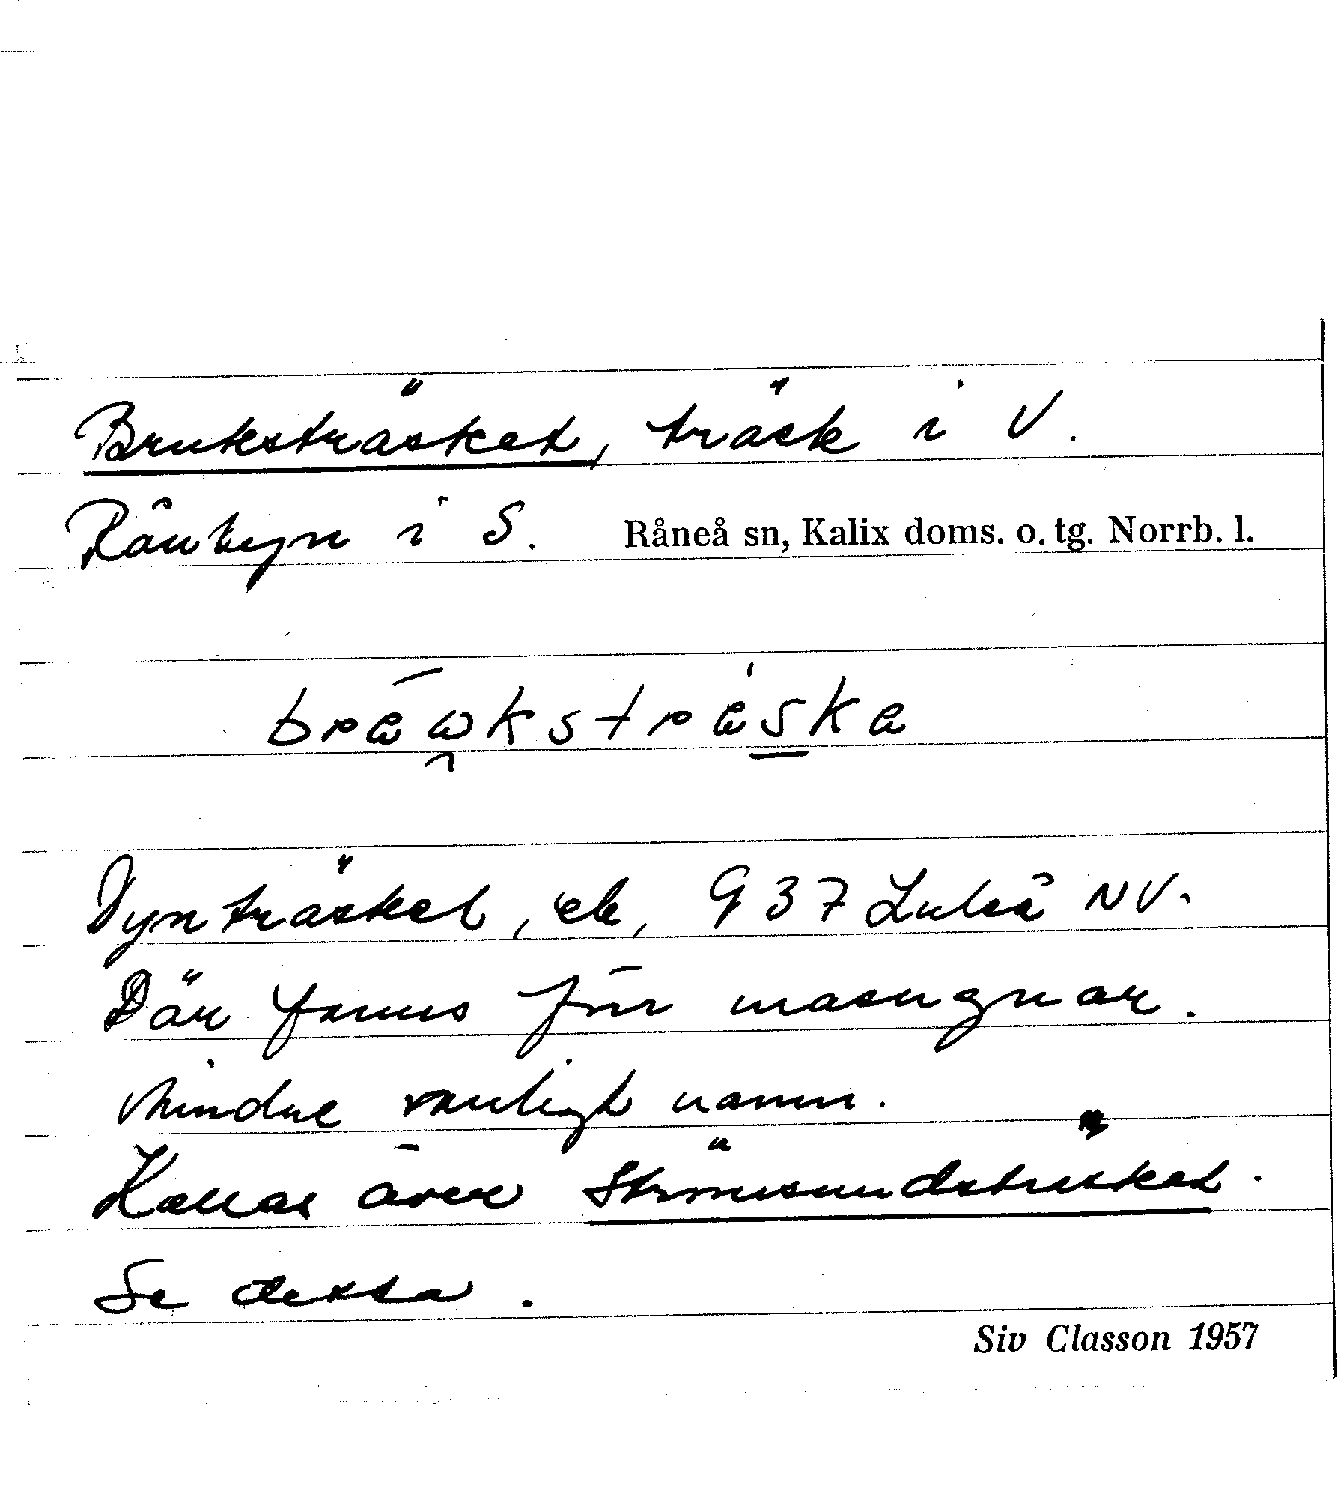 Bruksträsket, träsk i V.
Rånbyn i S. Råneå sn, Kalix doms. o. tg. Norrb. l.
Vynträsket, ek, 937 Luleå NV.
Där fanns förr masugnar.
Mindre vanligt namn.
Kallas även Strömsundsträsket.
Se detta.
Siv Classon 1957